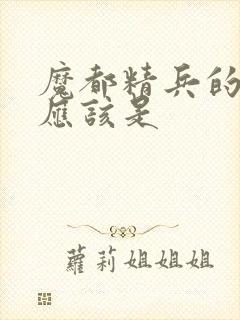 魔都精兵的
應該是
蘿莉姐姐姐